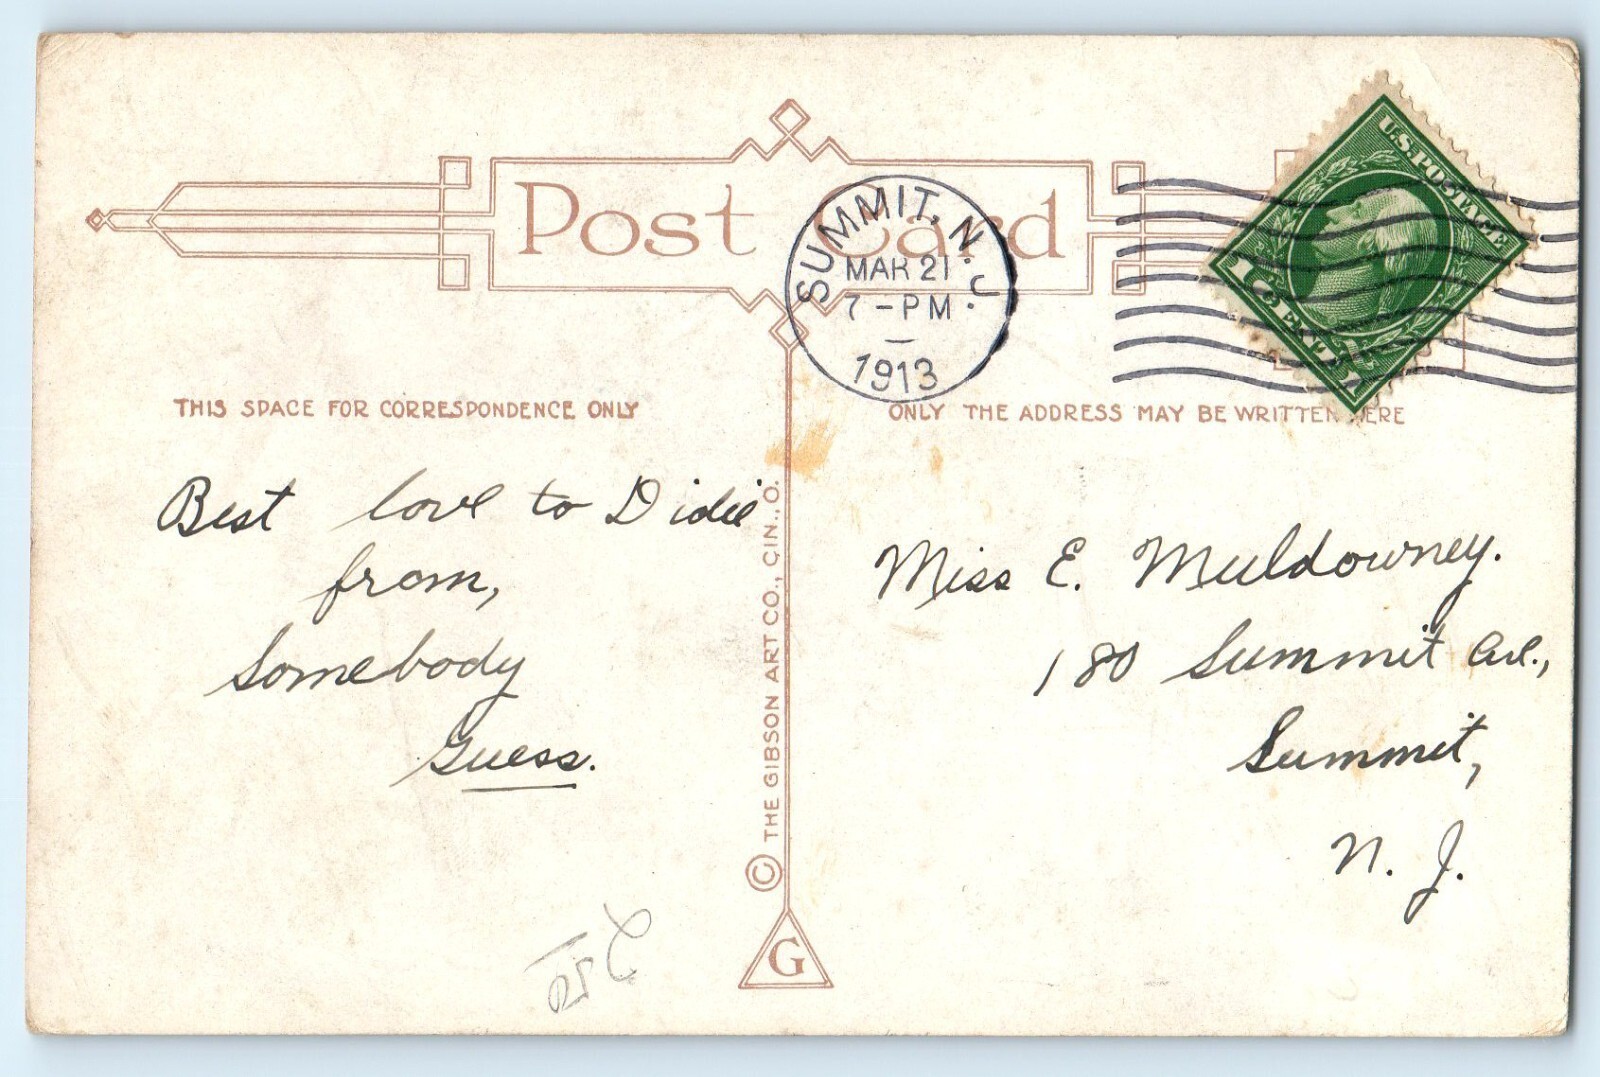 Post Card
SUMMIT, N.J.
MAR 21
7-PM.
1913
U.S. POSTAGE
1 CENT 1
THIS SPACE FOR CORRESPONDENCE ONLY
ONLY THE ADDRESS MAY BE WRITTEN HERE
Best love to Didie
from,
Somebody
Guess.
© THE GIBSON ART CO., CIN., O.
G
Miss E. Muldowney.
180 Summit Ave.,
Summit,
N. J.